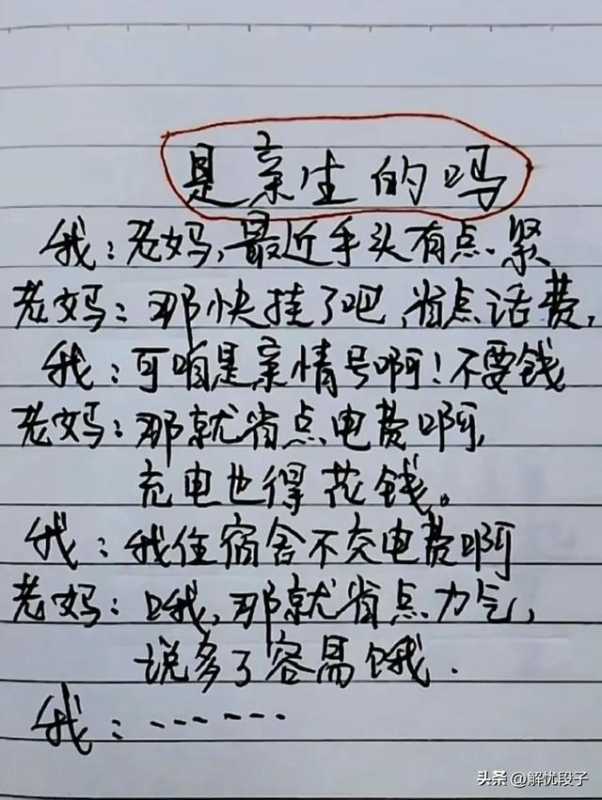 是亲生的吗
我：老妈，最近手头有点紧
老妈：那快挂了吧，省点话费，
我：可咱是亲情号啊！不要钱
老妈：那就省点电费啊，
充电也得花钱。
我：我住宿舍不交电费啊
老妈：哦，那就省点力气，
说多了容易饿．
我：……
头条 @解忧段子